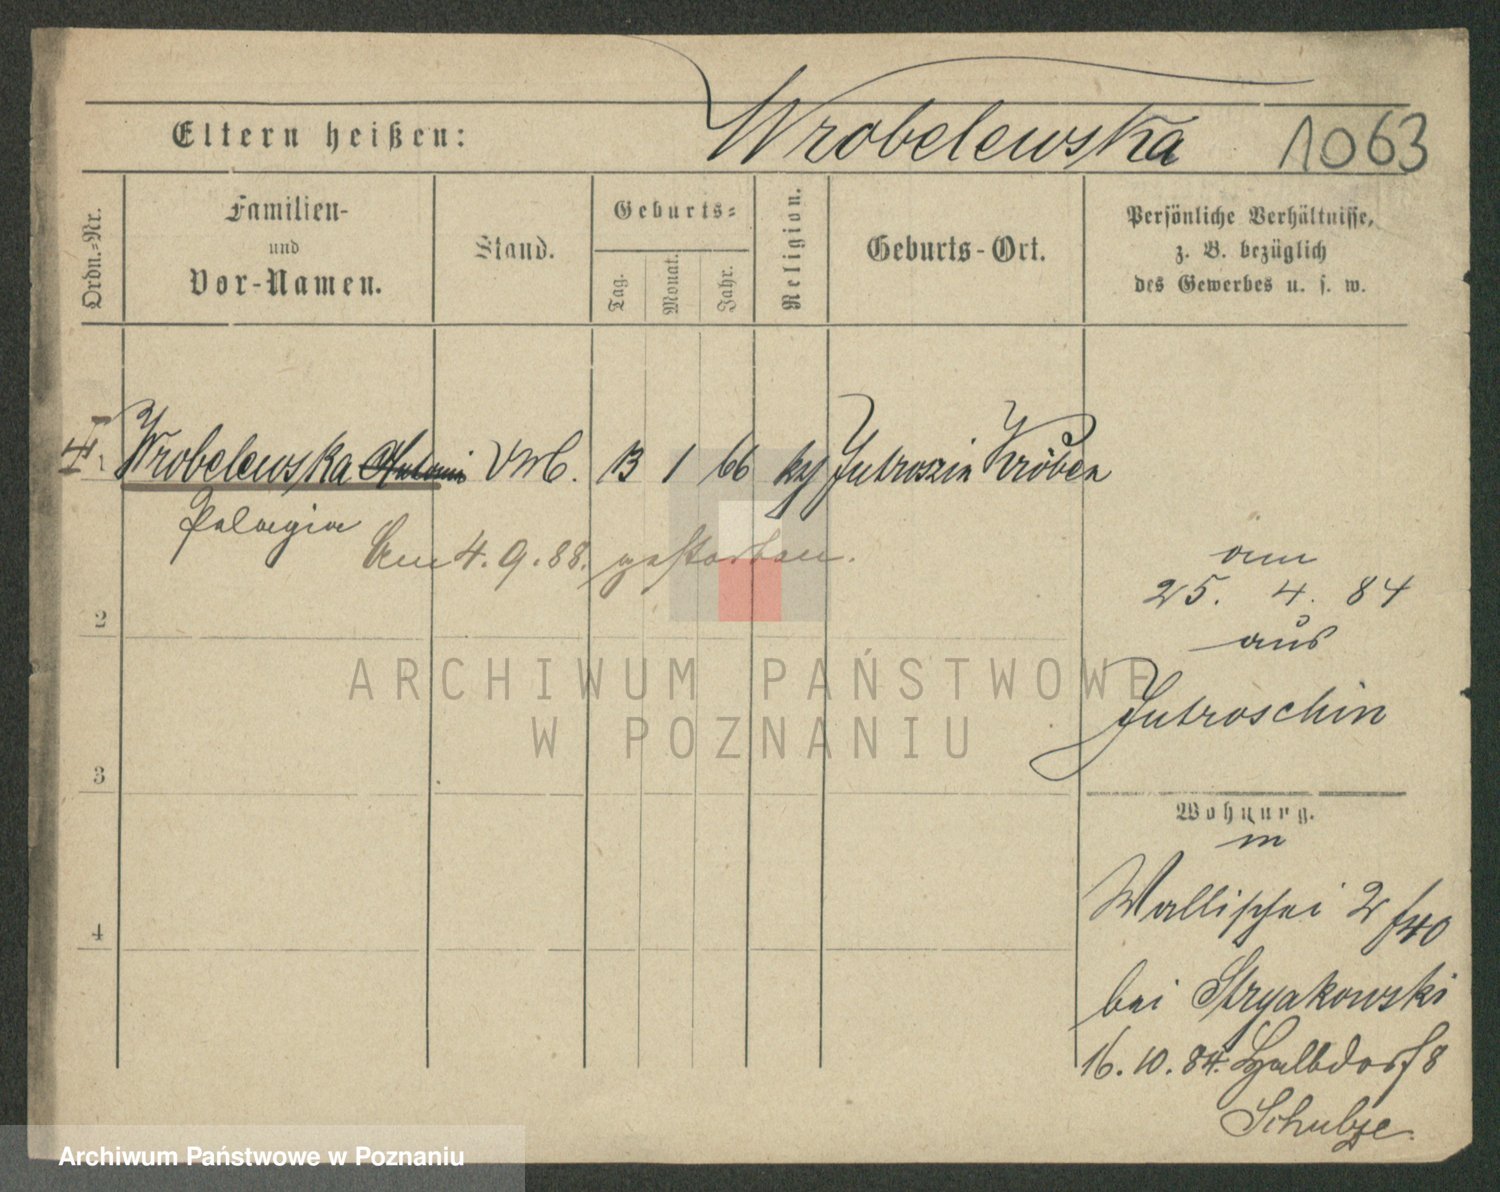 Wrobelewska 1063
Eltern heißen:
Ordn.-Nr.
Familien-
und
Vor-Namen.
Stand.
Geburts-
Tag.
Monat.
Jahr.
Religion.
Geburts-Ort.
Persönliche Verhältnisse,
z. B. bezüglich
des Gewerbes u. s. w.
1 Wrobelewska Antonie 13 1 66 Jutroszin Kröben
Pelagia
Am 4. 9. 88. gestorben.
2
3
4
am
25. 4. 84
aus
Jutroschin
Wohnung.
in
Wallischei 2
bei Stryakowski
16. 10. 84. Halbdorf 8
Schulze
ARCHIWUM PAŃSTWOWE
W POZNANIU
Archiwum Państwowe w Poznaniu